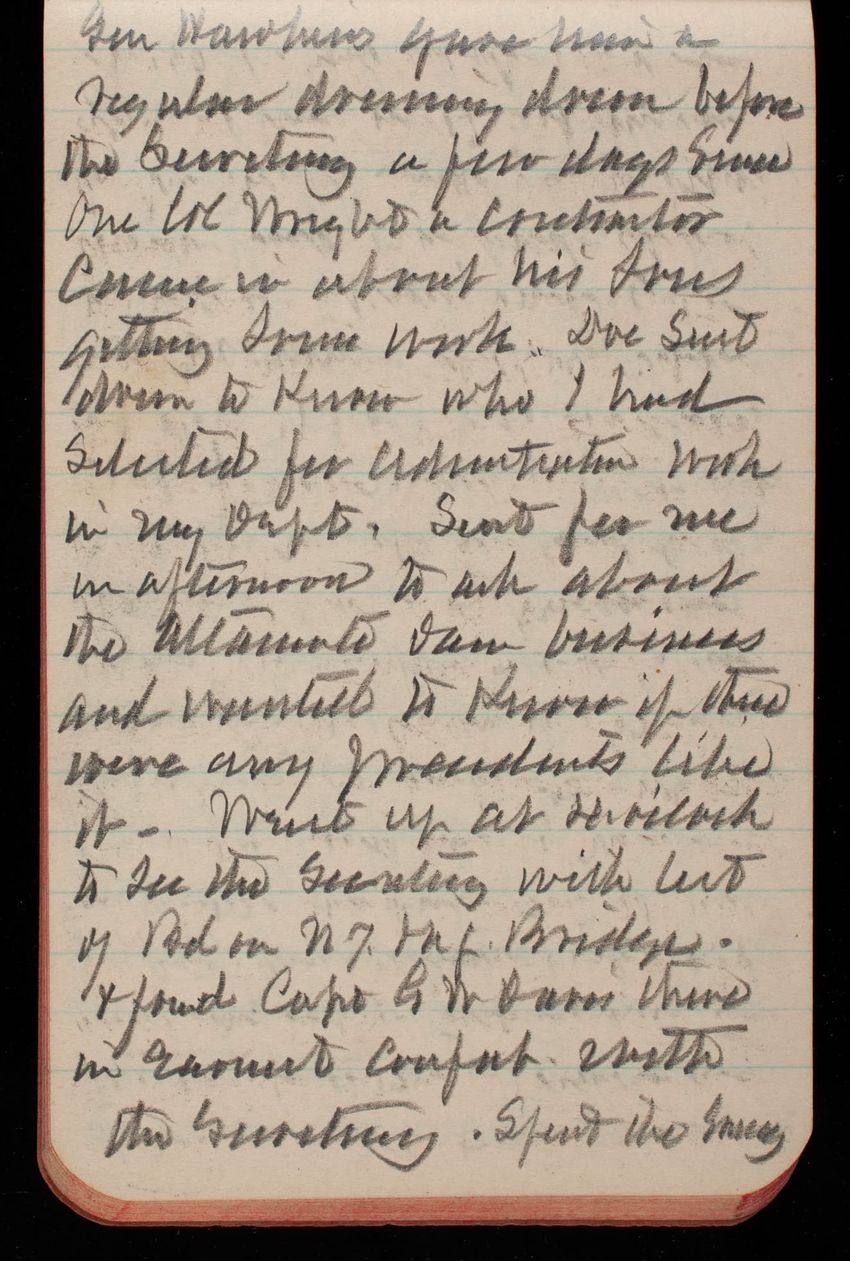 Gen Hawkins gave him a
regular dressing down before
the Secretary a few days since
One Col Wright a contractor
Came in about his sons
getting some work. Doe sent
down to Know who I had
Selected for adm work
in my Dept. Sent for me
in afternoon to ask about
the Altamaha dam business
and wanted to Know if there
were any precedents like
it -. Went up at 4 oclock
to see the Secretary with list
of Bd on N.J. Bridge.
& found Capt G W Davis there
in Earnest confab with
the Secretary. Spent the Evening